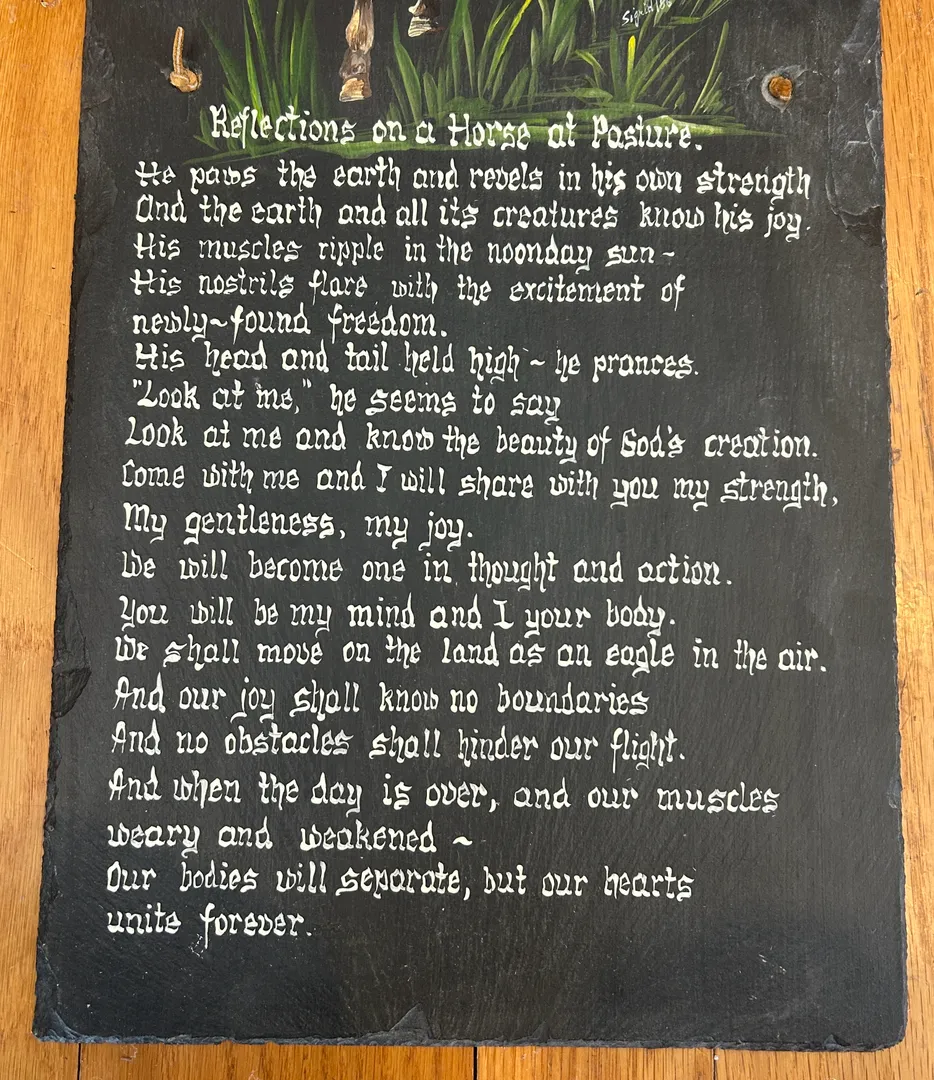 Sigrid '86
Reflections on a Horse at Pasture.
He paws the earth and revels in his own strength
And the earth and all its creatures know his joy.
His muscles ripple in the noonday sun~
His nostrils flare with the excitement of
newly~found freedom.
His head and tail held high~he prances.
"Look at me," he seems to say
Look at me and know the beauty of God's creation.
Come with me and I will share with you my strength,
My gentleness, my joy.
We will become one in thought and action.
You will be my mind and I your body.
We shall move on the land as an eagle in the air.
And our joy shall know no boundaries
And no obstacles shall hinder our flight.
And when the day is over, and our muscles
weary and weakened ~
Our bodies will separate, but our hearts
unite forever.